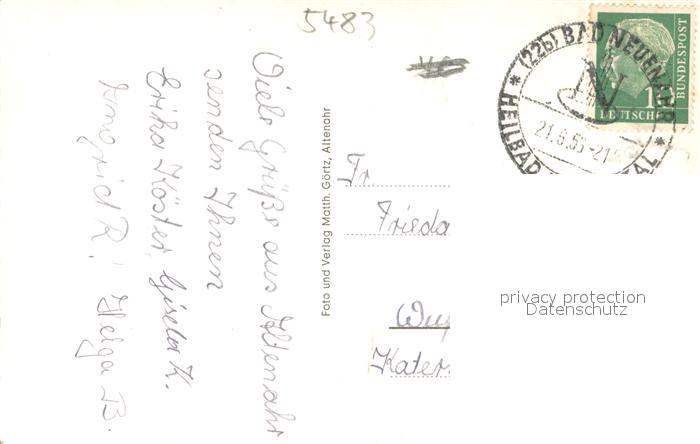 5483
Viele Grüße aus Altenahr
senden Ihnen
Erika Köster, Gisela K.
Ingrid R! Helga B.
Foto und Verlag Matth. Görtz, Altenahr
Fr.
Frieda
Wup
Kater
(22b) BAD NEUENAHR
HEILBAD
21.6.56-21
DEUTSCHE
BUNDESPOST
privacy protection
Datenschutz